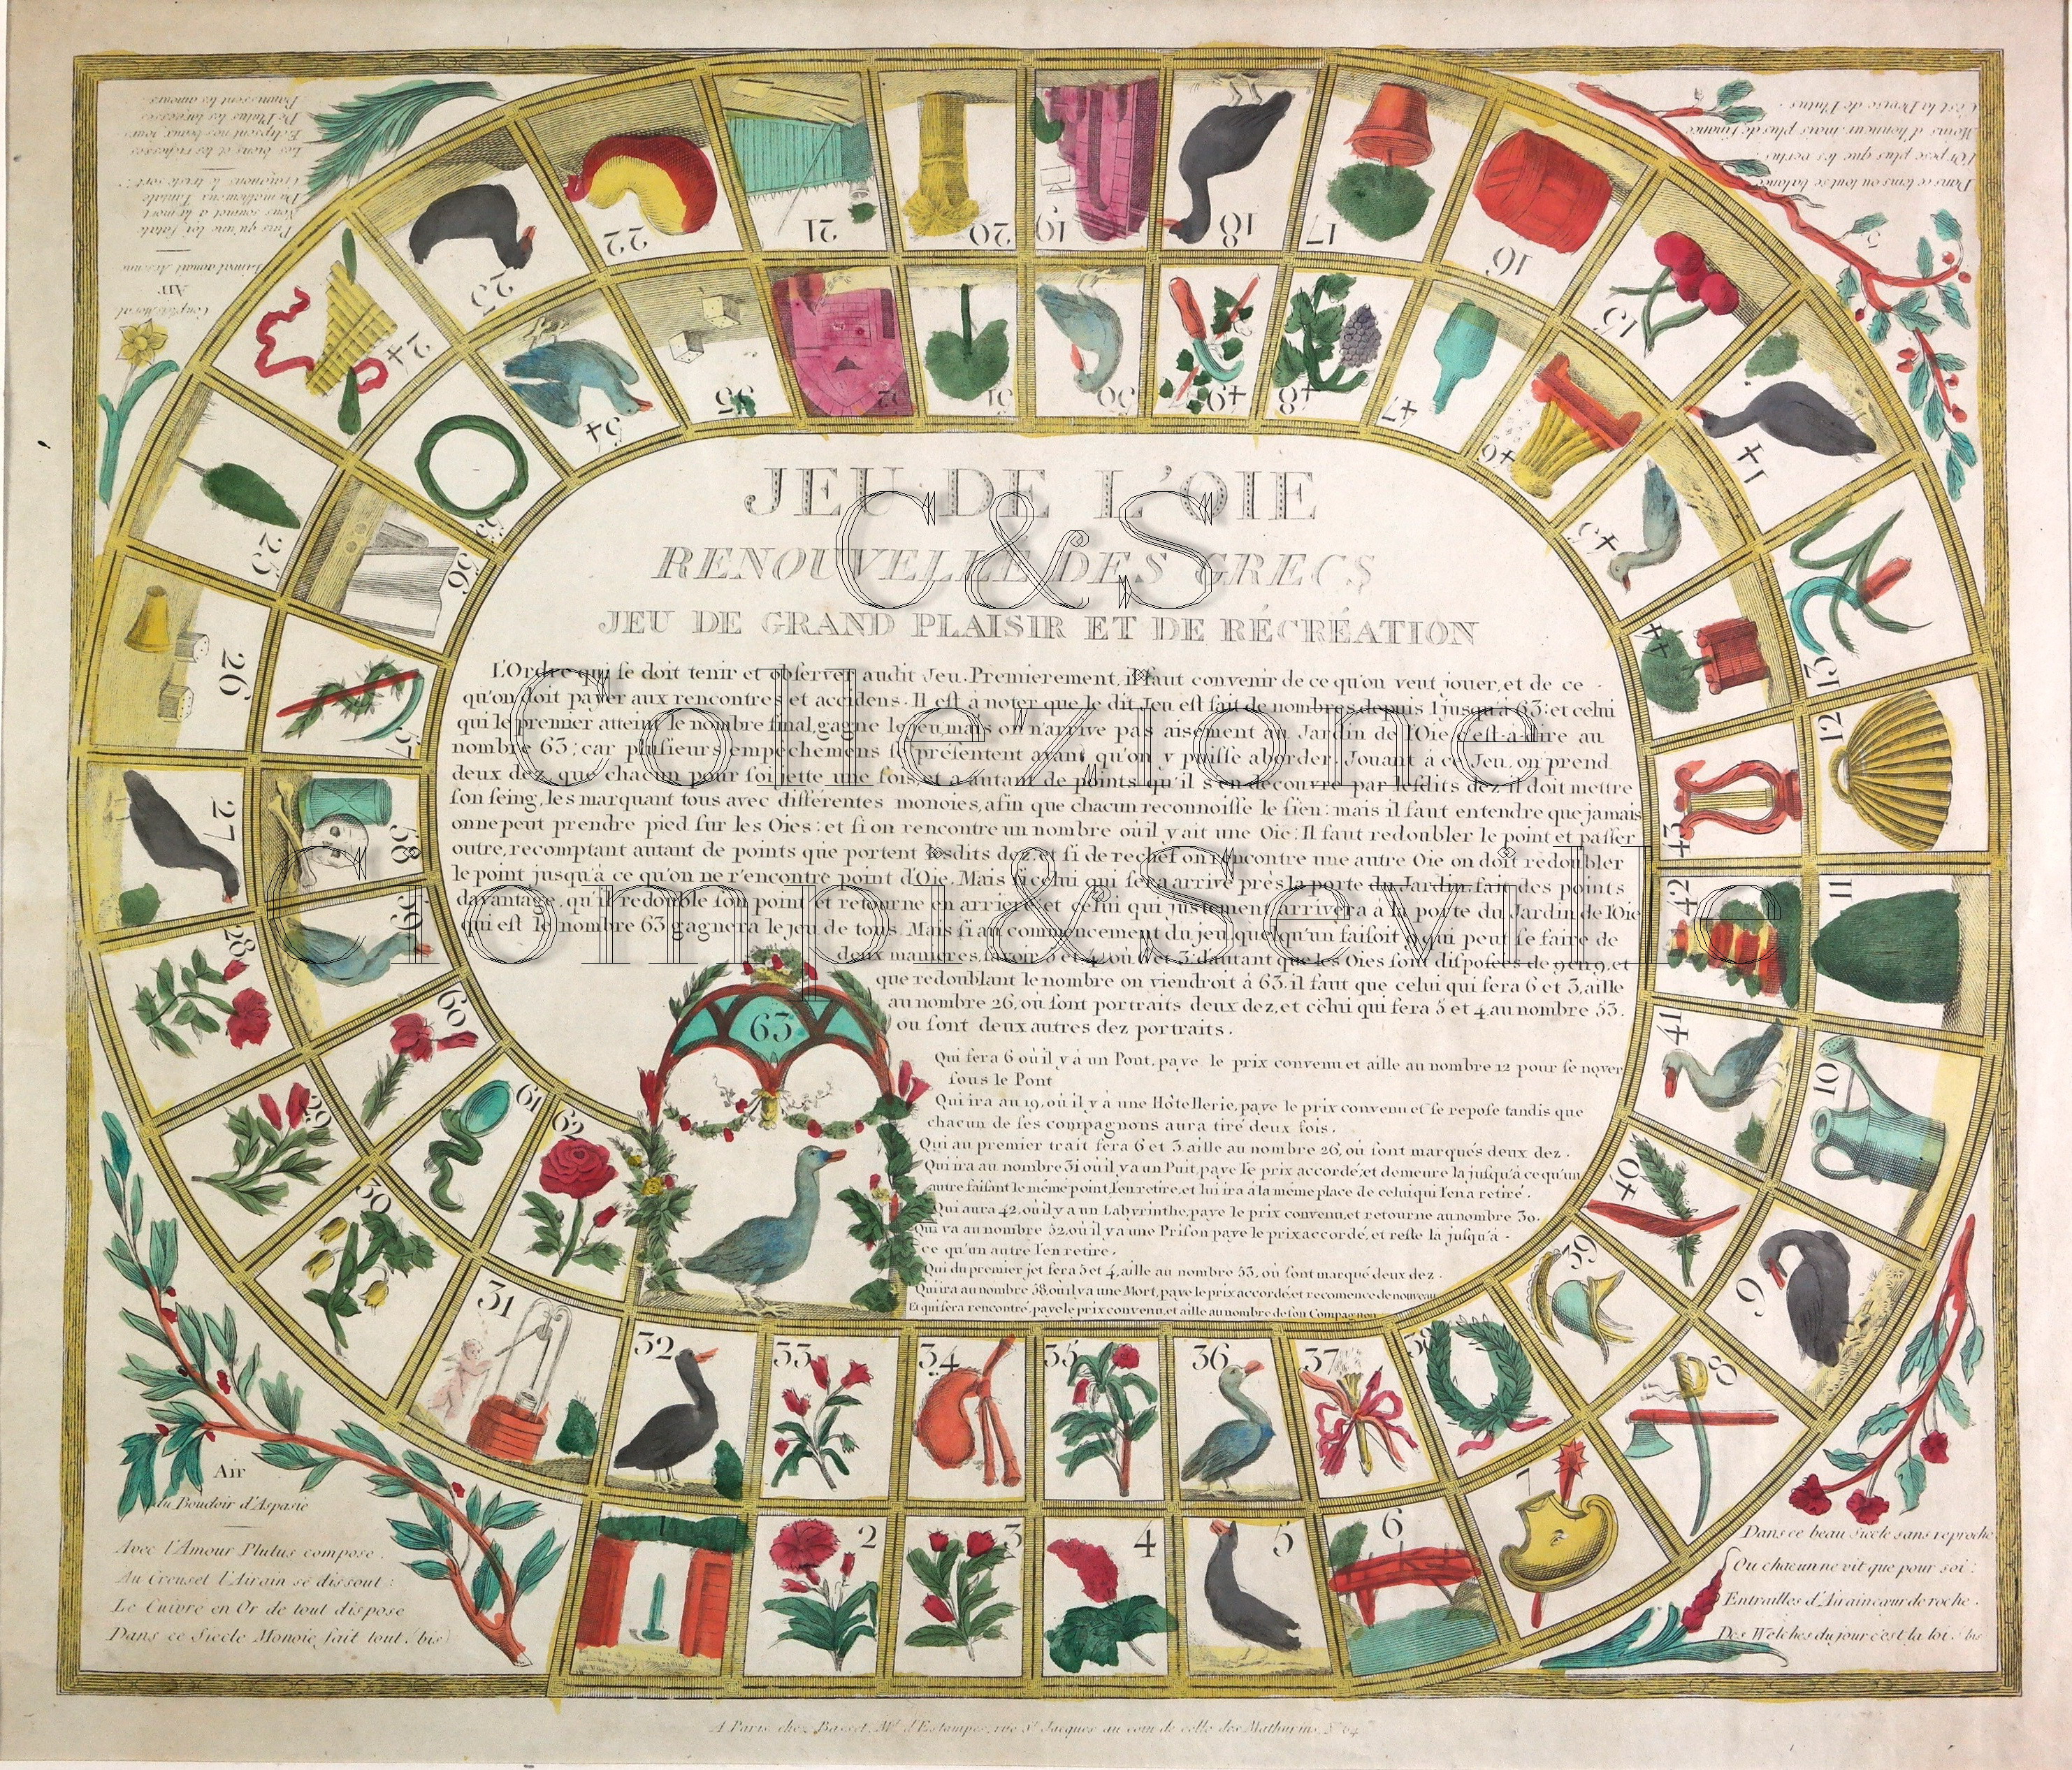 JEU DE L'OIE
RENOUVELLÉ DES GRECS
JEU DE GRAND PLAISIR ET DE RÉCRÉATION
L'Ordre qui se doit tenir et observer audit Jeu. Premierement, il faut convenir de ce qu'on veut jouer, et de ce
qu'on doit payer aux rencontres et accidens. Il est à noter que le dit Jeu est fait de nombres depuis 1 jusqu'à 63: et celui
qui le premier atteint le nombre final, gagne le jeu, mais on n'arrive pas aisement au Jardin de l'Oie, c'est-à-dire au
nombre 63; car plusieurs empechemens se présentent avant qu'on y puisse aborder. Jouant à ce Jeu, on prend
deux dez, que chacun pour soi jette une fois, et a autant de points qu'il s'en découvre par lesdits dez il doit mettre
son seing, les marquant tous avec différentes monoies, afin que chacun reconnoisse le sien: mais il faut entendre que jamais
on ne peut prendre pied sur les Oies: et si on rencontre un nombre où il y ait une Oie: Il faut redoubler le point et passer
outre, recomptant autant de points que portent lesdits dez, et si de rechef on rencontre une autre Oie on doit redoubler
le point jusqu'à ce qu'on ne r'encontre point d'Oie. Mais si celui qui sera arrivé près la porte du Jardin fait des points
davantage, qu'il redouble son point et retourne en arriere et celui qui justement arrivera à la porte du Jardin de l'Oie
qui est le nombre 63 gagnera le jeu de tous. Mais si au commencement du jeu, quelqu'un faisoit 9 qui peut se faire de
deux manieres, savoir 5 et 4, ou 6 et 3: d'autant que les Oies sont disposées de 9 en 9, et
que redoublant le nombre on viendroit à 63, il faut que celui qui sera 6 et 3, aille
au nombre 26, où sont portraits deux dez, et celui qui sera 5 et 4, au nombre 53,
où sont deux autres dez portraits.
Qui sera 6 où il y a un Pont, paye le prix convenu et aille au nombre 12 pour se noyer
sous le Pont
Qui ira au 19, où il y à une Hôtellerie, paye le prix convenu et se repose tandis que
chacun de ses compagnons aura tiré deux fois.
Qui au premier trait sera 6 et 3 aille au nombre 26, où sont marqués deux dez.
Qui ira au nombre 31 où il y a un Puit, paye le prix accordé, et demeure là jusqu'à ce qu'un
autre faisant le même point, l'en retire, et lui ira à la même place de celui qui l'en a retiré.
Qui aura 42, où il y a un Labyrinthe, paye le prix convenu, et retourne au nombre 30.
Qui va au nombre 52, où il y a une Prison paye le prix accordé, et reste là jusqu'à
ce qu'un autre l'en retire.
Qui du premier jet sera 5 et 4, aille au nombre 53, où sont marqué deux dez.
Qui ira au nombre 58, où il y a une Mort, paye le prix accordé, et recomence de nouveau
Et qui sera rencontré, paye le prix convenu, et aille au nombre de son Compagnon
C&S
Collezione
Ciompi&Seville
1
2
3
4
5
6
7
8
9
10
11
12
13
14
15
16
17
18
19
20
21
22
23
24
25
26
27
28
29
30
31
32
33
34
35
36
37
38
39
40
41
42
43
44
45
46
47
48
49
50
51
52
53
54
55
56
57
58
59
60
61
62
63
Couplet Moral
Air
Animal
Puis qu'une loi fatale
Nous soumet à la mort
Du malheureux Tantale
Craignons le triste sort:
Les biens et les richesses
Eclipsent nos beaux jours
De Plutus les largesses
Bannissent les amours
Dans ce tems ou tout se balance
L'Or pese plus que les vertus:
Moins d'honneur mais plus de finance
C'est la Devise de Plutus.
Air
du Boudoir d'Aspasie
Avec l'Amour Plutus compose.
Au Creuset l'Airain se dissout:
Le Cuivre en Or de tout dispose
Dans ce Siecle Monoie fait tout. (bis)
Dans ce beau Siecle sans reproche
Ou chacun ne vit que pour soi:
Entrailles d'Airain cœur de roche.
Des Welches du jour c'est la loi. bis
A Paris chez Basset, Md. d'Estampes, rue St. Jacques au coin de celle des Mathurins, No. 64